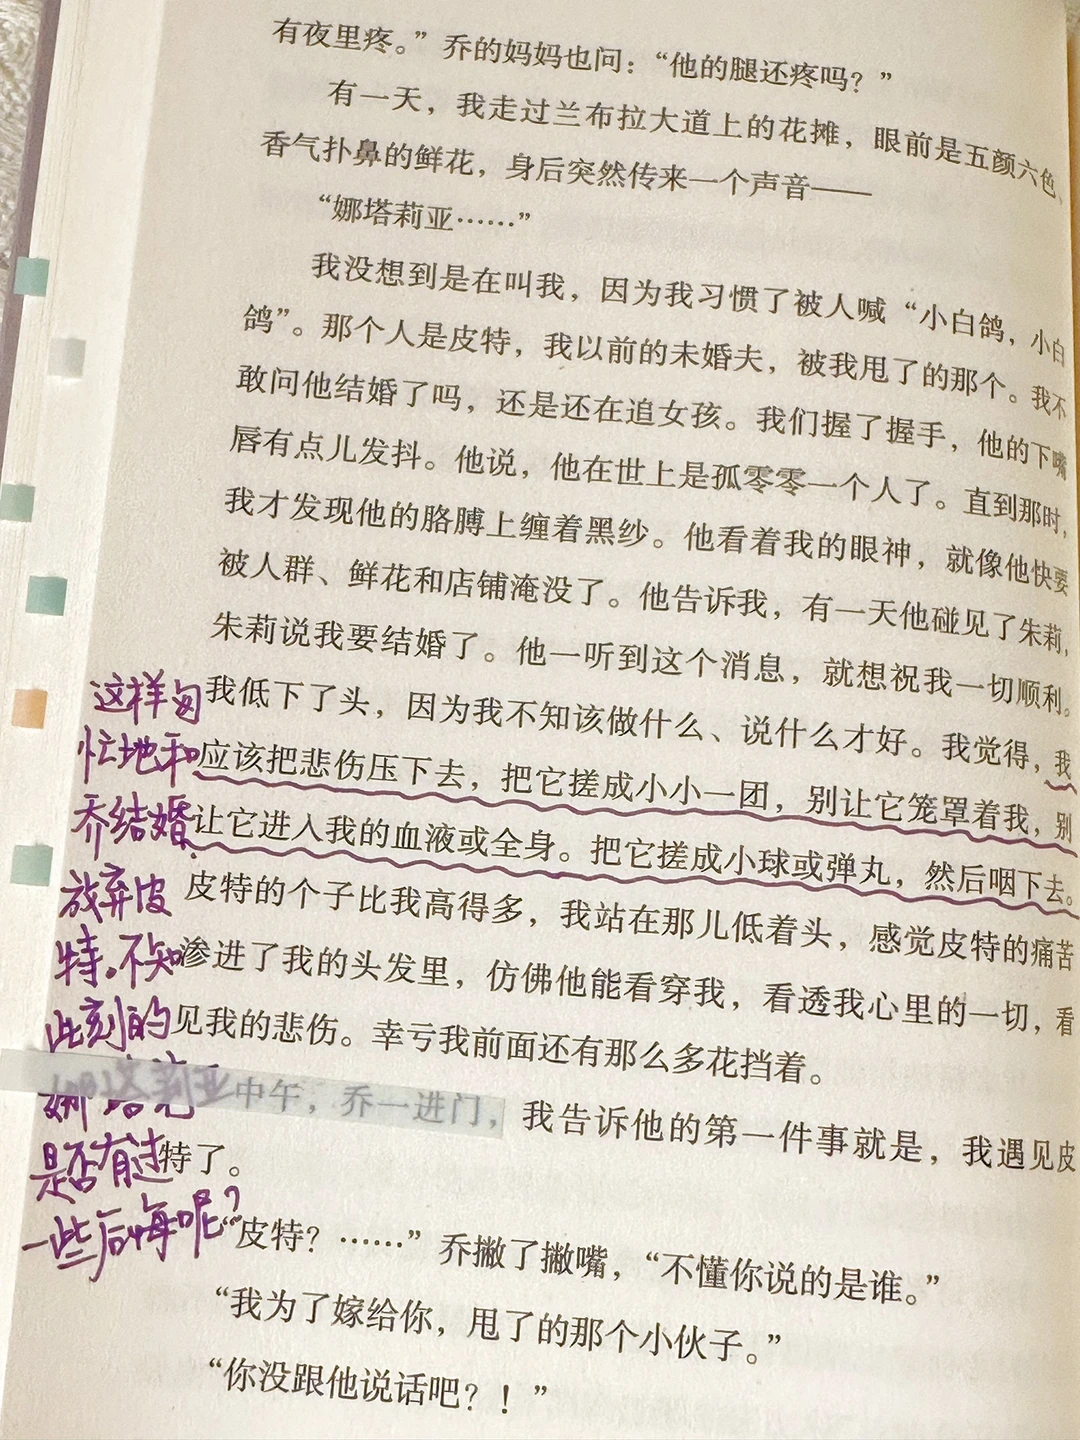 有夜里疼。”乔的妈妈也问：“他的腿还疼吗？”
有一天，我走过兰布拉大道上的花摊，眼前是五颜六色、
香气扑鼻的鲜花，身后突然传来一个声音——
“娜塔莉亚……”
我没想到是在叫我，因为我习惯了被人喊“小白鸽，小白
鸽”。那个人是皮特，我以前的未婚夫，被我甩了的那个。我不
敢问他结婚了吗，还是还在追女孩。我们握了握手，他的下嘴
唇有点儿发抖。他说，他在世上是孤零零一个人了。直到那时，
我才发现他的胳膊上缠着黑纱。他看着我的眼神，就像他快要
被人群、鲜花和店铺淹没了。他告诉我，有一天他碰见了朱莉，
朱莉说我要结婚了。他一听到这个消息，就想祝我一切顺利。
我低下了头，因为我不知该做什么、说什么才好。我觉得，我
应该把悲伤压下去，把它搓成小小一团，别让它笼罩着我，别
让它进入我的血液或全身。把它搓成小球或弹丸，然后咽下去。
皮特的个子比我高得多，我站在那儿低着头，感觉皮特的痛苦
渗进了我的头发里，仿佛他能看穿我，看透我心里的一切，看
见我的悲伤。幸亏我前面还有那么多花挡着。
中午，乔一进门，我告诉他的第一件事就是，我遇见皮
特了。
“皮特？……”乔撇了撇嘴，“不懂你说的是谁。”
“我为了嫁给你，甩了的那个小伙子。”
“你没跟他说话吧？！”
这样匆
忙地和
乔结婚
放弃皮
特。不知
此刻的
娜塔莉亚
是否有过
一些后悔呢？